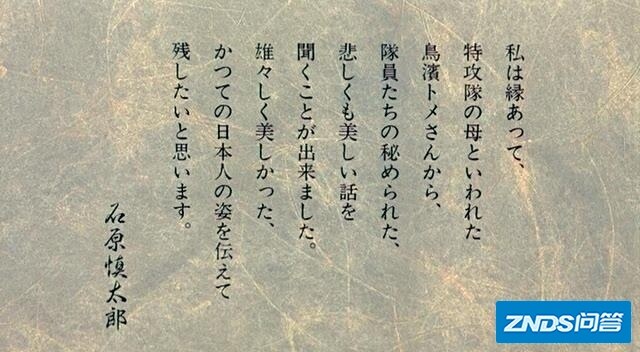 私は縁あって、
特攻隊の母といわれた
鳥濱トメさんから、
隊員たちの秘められた、
悲しくも美しい話を
聞くことが出来ました。
雄々しく美しかった、
かつての日本人の姿を伝えて
残したいと思います。
石原慎太郎
ZNDS问答